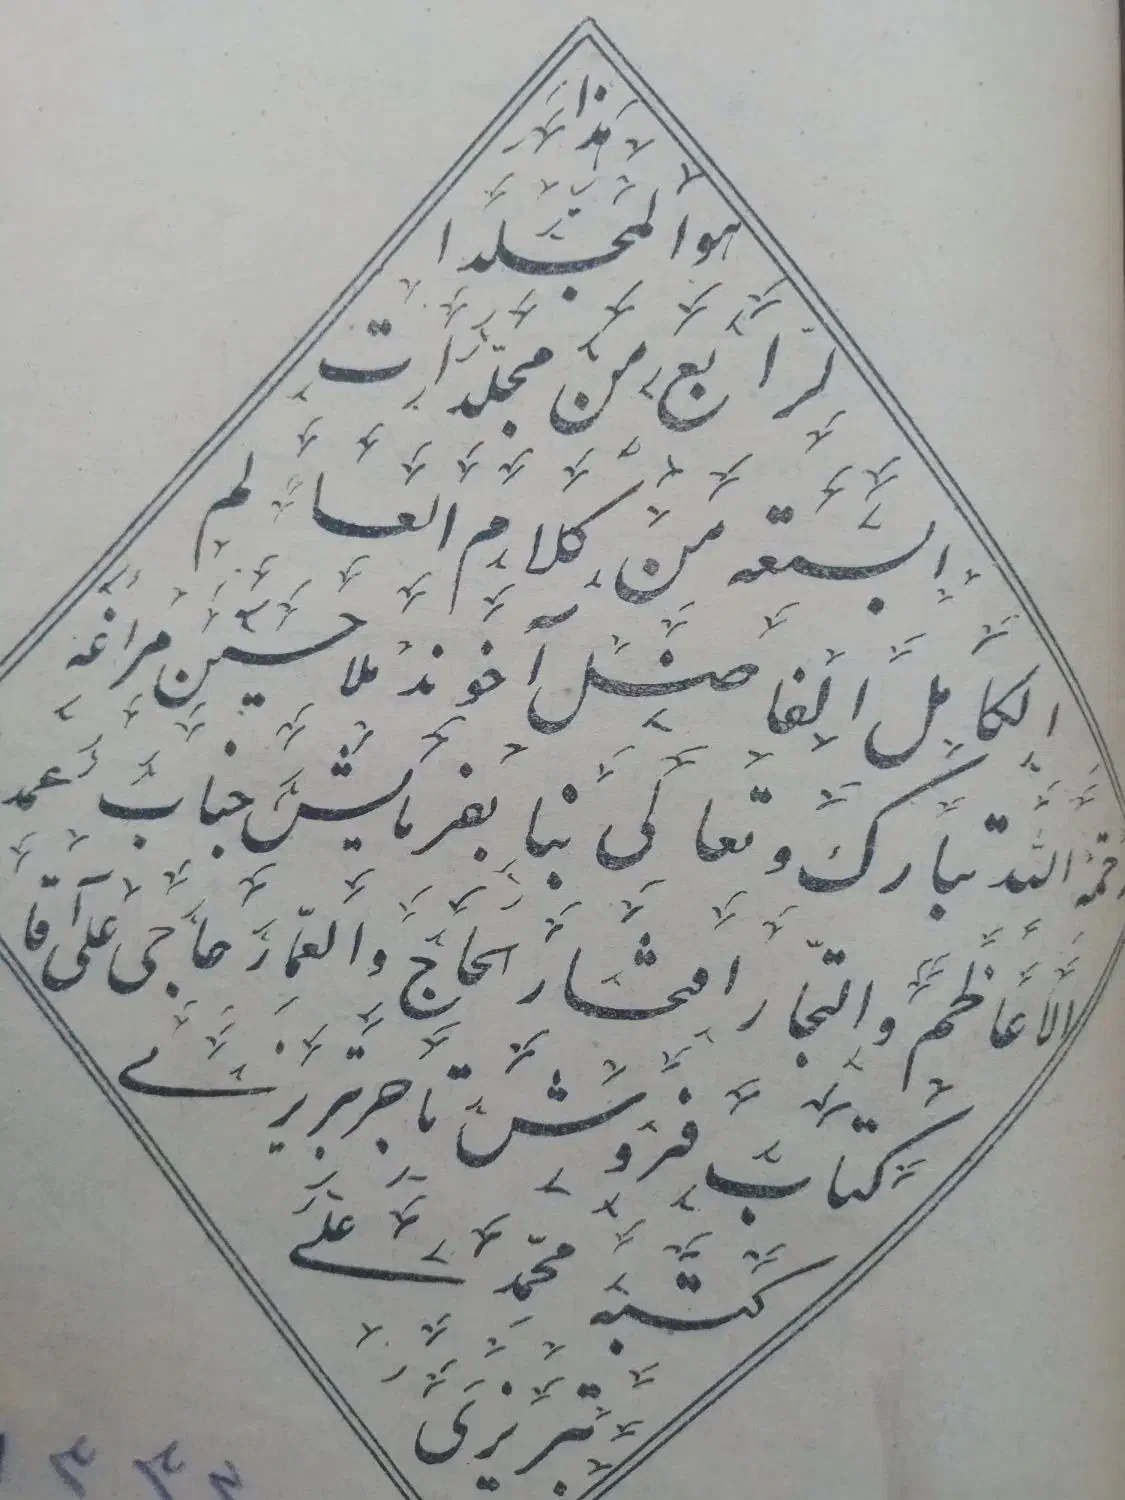 هذا
هوالمجلد ا
لرابع من مجلدات
السبعه من كلام العالم
الكامل الفاضل آخوند ملا حسين مراغه
رحمه الله تبارك وتعالى بنا بفرمايش جناب عمدة
الاعاظم والتجار افتخار الحاج والعمار حاجى على آقا
كتاب فروش تاجر تبريزے
كتبه محمد علے
تبريزى